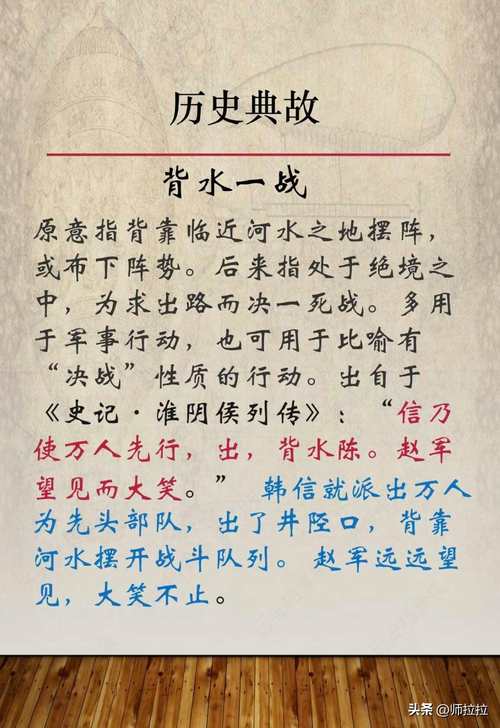 历史典故
背水一战
原意指背靠临近河水之地摆阵，
或布下阵势。后来指处于绝境之
中，为求出路而决一死战。多用
于军事行动，也可用于比喻有
“决战”性质的行动。出自于
《史记·淮阴侯列传》：“信乃
使万人先行，出，背水陈。赵军
望见而大笑。” 韩信就派出万人
为先头部队，出了井陉口，背靠
河水摆开战斗队列。赵军远远望
见，大笑不止。
头条 @师拉拉